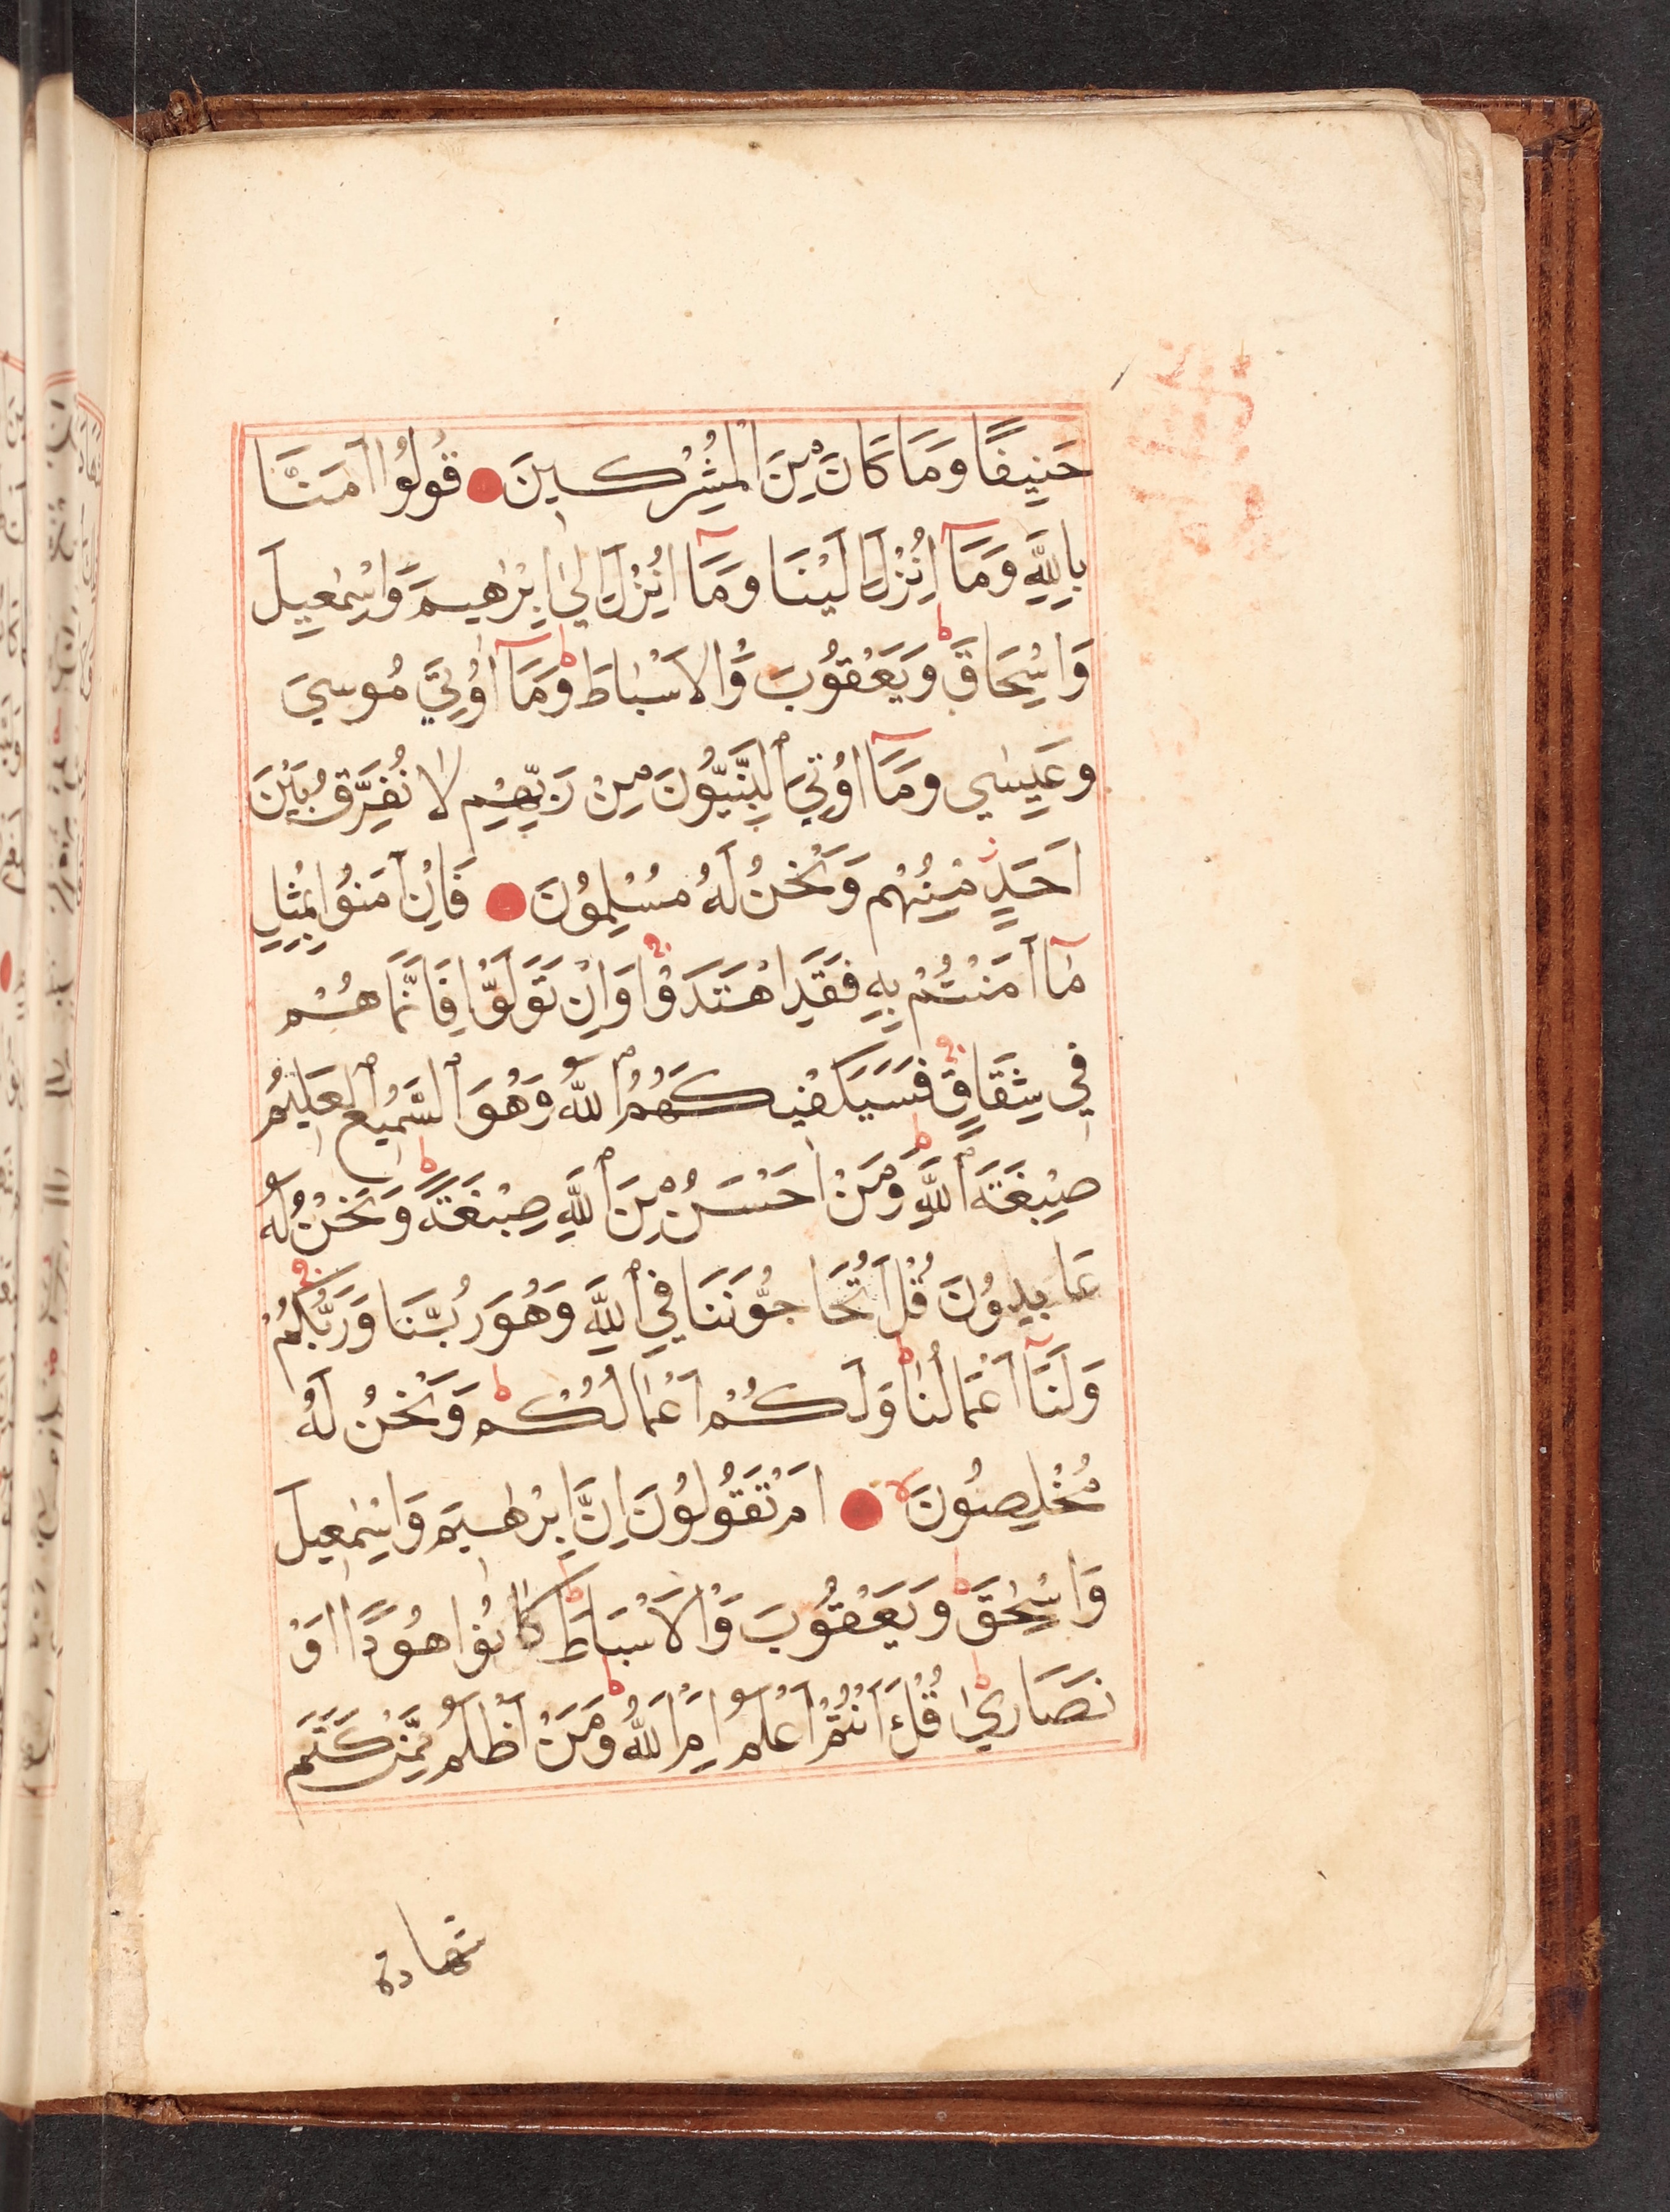 حَنِيفًا وَمَا كَانَ مِنَ الْمُشْرِكِينَ قُولُوا اٰمَنَّا
بِاللَّهِ وَمَآ اُنْزِلَ اِلَيْنَا وَمَآ اُنْزِلَ اِلىٰ اِبْرٰهِيمَ وَاِسْمٰعِيلَ
وَاِسْحَاقَ وَيَعْقُوبَ وَالْاَسْبَاطَ وَمَآ اُوْتِيَ مُوسىَ
وَعِيسٰي وَمَآ اُوْتِيَ النَّبِيُّونَ مِنْ رَبِّهِمْ لَا نُفَرِّقُ بَيْنَ
اَحَدٍ مِنْهُمْ وَنَحْنُ لَهُ مُسْلِمُونَ فَاِنْ اٰمَنُوْا بِمِثْلِ
مَآ اٰمَنْتُمْ بِهِ فَقَدِ اهْتَدَوْا وَاِنْ تَوَلَّوْا فَاِنَّمَا هُمْ
فِي شِقَاقٍ فَسَيَكْفِيكَهُمُ اللّٰهُ وَهُوَ السَّمِيْعُ الْعَلِيْمُ
صِبْغَةَ اللَّهِ وَمَنْ اَحْسَنُ مِنَ اللَّهِ صِبْغَةً وَنَحْنُ لَهُ
عَابِدُوْنَ قُلْ اَتُحَاجُّوْنَنَا فِي اللَّهِ وَهُوَ رَبُّنَا وَرَبُّكُمْ
وَلَنَآ اَعْمَالُنَا وَلَكُمْ اَعْمَالُكُمْ وَنَحْنُ لَهُ
مُخْلِصُونَ اَمْ تَقُولُوْنَ اِنَّ اِبْرٰهِيمَ وَاِسْمٰعِيلَ
وَاِسْحٰقَ وَيَعْقُوْبَ وَالْاَسْبَاطَ كَانُوْا هُوْدًا اَوْ
نَصَارٰي قُلْ ءَاَنْتُمْ اَعْلَمُ اَمِ اللّٰهُ وَمَنْ اَظْلَمُ مِمَّنْ كَتَمَ
شهادة